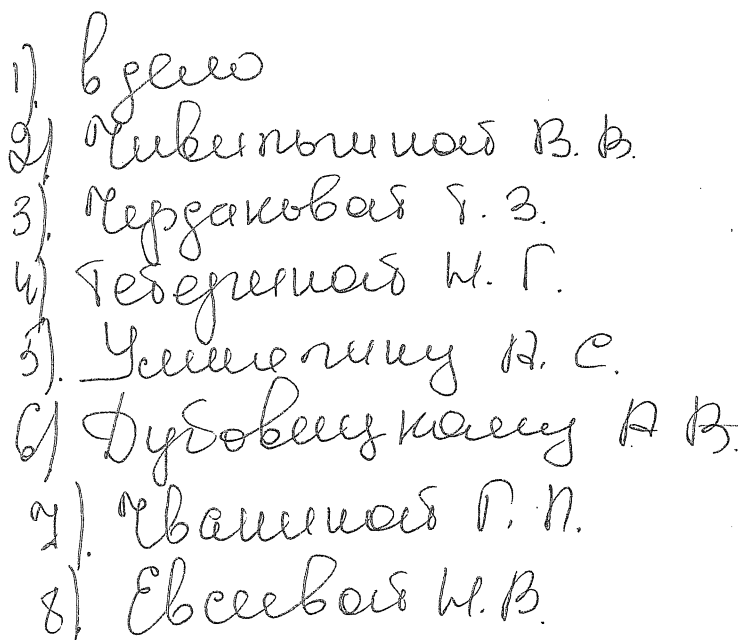 1). в дело
2). Чивильгиной В. В.
3). Чердаковой Т. З.
4) Тебергиной Н. Г.
5). А. С.
6) Дубовицкому А В.
7). Чваниной Г. П.
8) Евсеевой Н. В.